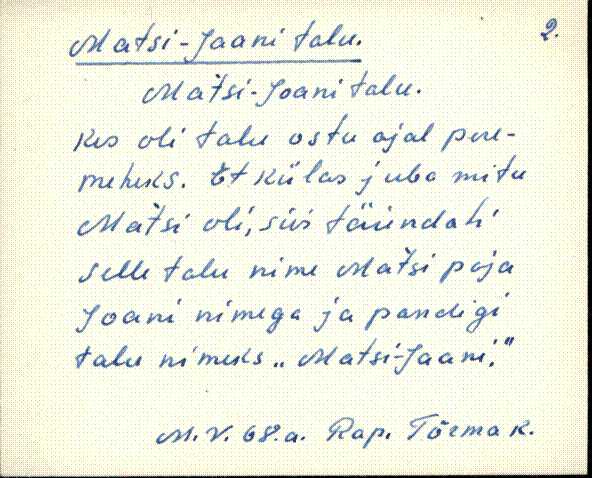 2.
Matsi-Jaani talu.
Matši-Joani talu.
Kes oli talu ostu ajal pere-
meheks. Et külas juba mitu
Matši oli, siis täiendati
selle talu nime Matši poja
Joani nimega ja pandigi
talu nimeks „Matsi-Jaani."
M.V. 68.a. Rap. Tõrma k.